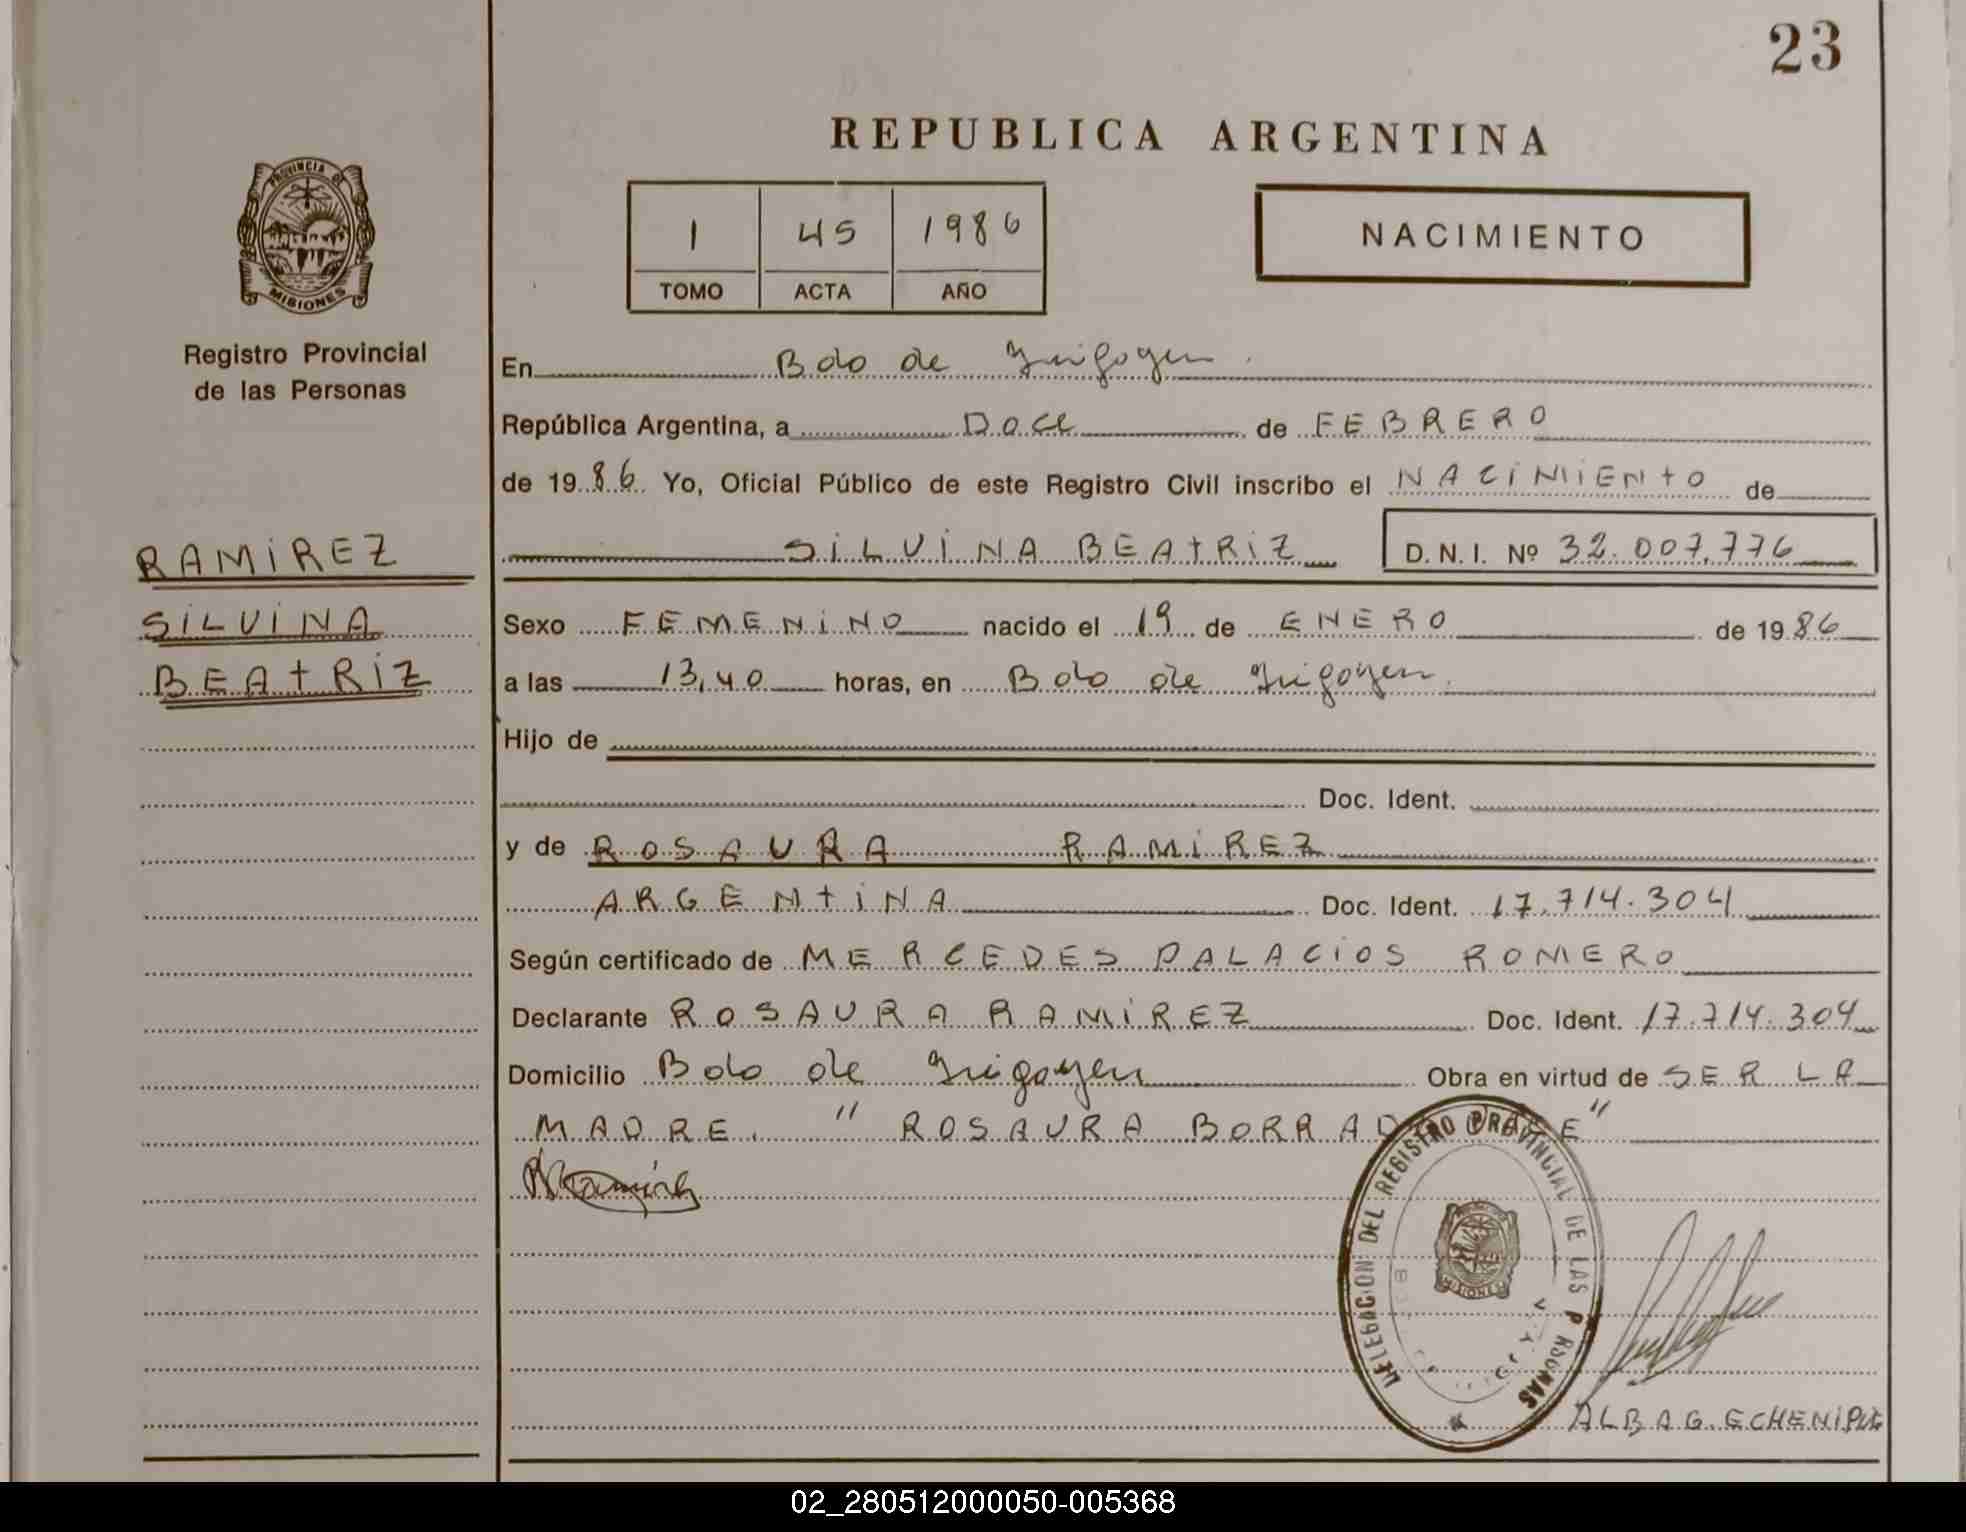 23
REPUBLICA ARGENTINA
PROVINCIA DE
MISIONES
1 45 1986
TOMO ACTA AÑO
NACIMIENTO
Registro Provincial
de las Personas
En Bdo de Irigoyen.
República Argentina, a DOCE de FEBRERO
de 1986 Yo, Oficial Público de este Registro Civil inscribo el NACIMIENTO de
RAMIREZ
SILVINA
BEATRIZ
SILVINA BEATRIZ D.N.I. Nº 32.007.776
Sexo FEMENINO nacido el 19 de ENERO de 1986
a las 13,40 horas, en Bdo de Irigoyen.
Hijo de
Doc. Ident.
y de ROSAURA RAMIREZ
ARGENTINA Doc. Ident. 17.714.304
Según certificado de MERCEDES PALACIOS ROMERO
Declarante ROSAURA RAMIREZ Doc. Ident. 17.714.304
Domicilio Bdo de Irigoyen Obra en virtud de SER LA
MADRE. " ROSAURA BORRADO "
RRamirez
DELEGACION DEL REGISTRO PROVINCIAL DE LAS PERSONAS
MISIONES
ALBA G. ECHENIQUE
02_280512000050-005368